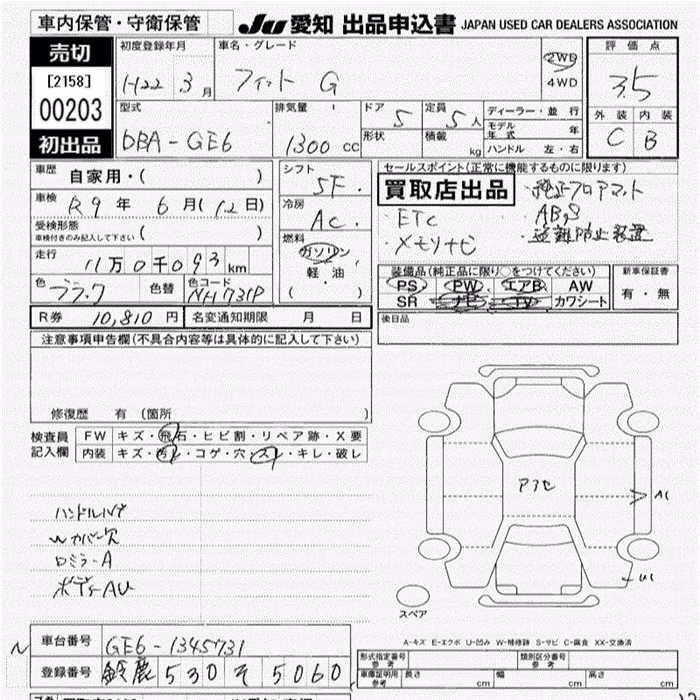 車内保管・守衛保管
JU 愛知 出品申込書 JAPAN USED CAR DEALERS ASSOCIATION
売切
[2158]
00203
初出品
初度登録年月
H22 . 3 月
車名・グレード
フィット G
2WD
4WD
評価点
3.5
外装 内装
C B
型式
DBA-GE6
排気量
1300 CC
ドア 5
定員 5 人
形状
積載 kg
ディーラー・並行
モデル年式 年
ハンドル 左・右
車歴
自家用・( )
車検 R9 年 6 月 (12 日)
受検形態
車検付きのみ記入して下さい ( )
走行
11万0千093 km
色 ブラック 色替 色コード NH731P
シフト
5F.
冷房
AC.
燃料
ガソリン
軽・油
( )
セールスポイント(正常に機能するものに限ります)
買取店出品
・純正フロアマット
・ETC
・ABS
・メモリナビ
・盗難防止装置
装備品(純正品に限り○をつけてください)
PS PW エアB AW
SR ナビ TV カワシート
新車保証書
有・無
R券 10,810 円 名変通知期限 月 日
後日品
注意事項申告欄(不具合内容等は具体的に記入して下さい)
修復歴 有 (箇所
検査員
記入欄
FW キズ・飛石・ヒビ割・リペア跡・X要
内装 キズ・汚れ・コゲ・穴・スレ・キレ・破レ
ハンドルハゲ
Wカバー欠
ロミラーA
ボディAU
アフセ
A1
U1
スペア
A-キズ E-エクボ U-凹み W-補修跡 S-サビ C-腐食 XX-交換済
N
車台番号 GE6-1345731
登録番号 鈴鹿 530 そ 5060
形式指定番号
参考
類別区分番号
参考
車庫証明用
参考
長さ cm 幅 cm 高さ cm